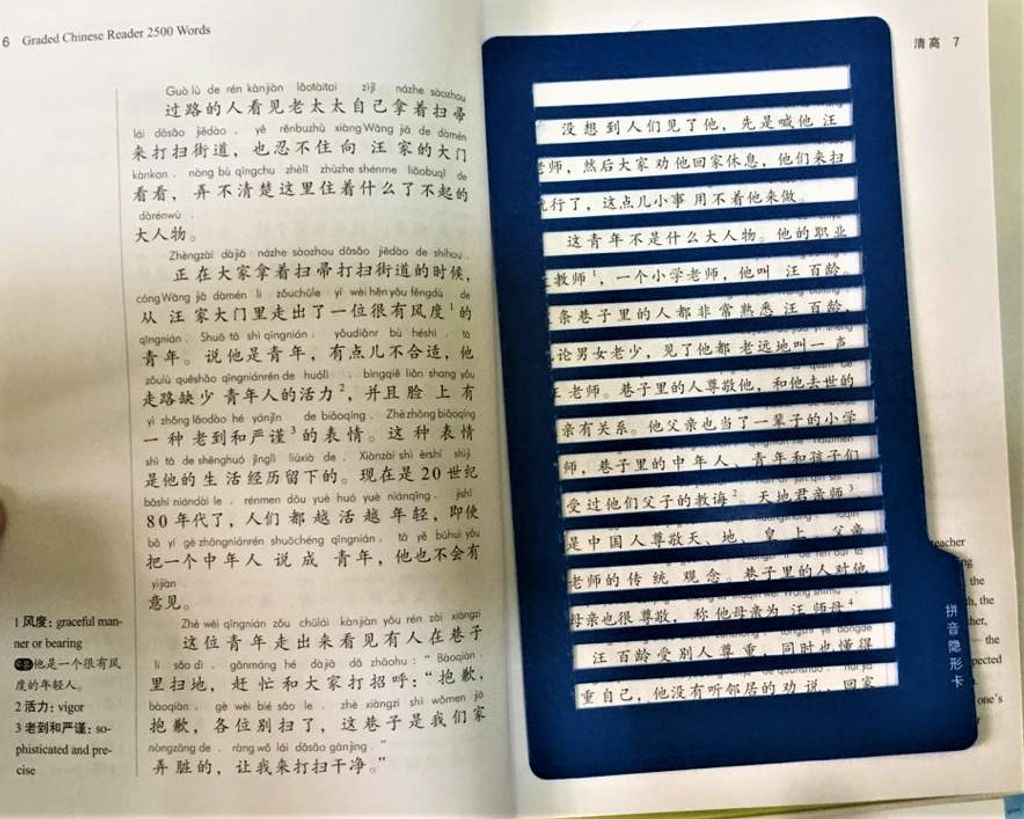 6 Graded Chinese Reader 2500 Words
Guò lù de rén kànjiàn lǎotàitai zìjǐ názhe sàozhou
过路的人看见老太太自己拿着扫帚
lái dǎsǎo jiēdào , yě rěnbuzhù xiàng Wāng jiā de dàmén
来打扫街道，也忍不住向 汪家的大门
kànkan , nòng bù qīngchu zhèlǐ zhùzhe shénme liǎobuqǐ de
看看，弄不清楚这里住着什么了不起的
dàrénwù .
大人物。
Zhèngzài dàjiā názhe sàozhou dǎsǎo jiēdào de shíhou ,
正在大家拿着扫帚打扫街道的时候，
cóng Wāng jiā dàmén li zǒuchūle yí wèi hěn yǒu fēngdù de
从 汪家大门里走出了一位很有风度1的
qīngnián . Shuō tā shì qīngnián , yǒudiǎnr bù héshì , tā
青年。说他是青年，有点儿不合适，他
zǒulù quēshǎo qīngniánrén de huólì , bìngqiě liǎn shang yǒu
走路缺少 青年人的活力2，并且脸 上有
yì zhǒng lǎodào hé yánjǐn de biǎoqíng . Zhè zhǒng biǎoqíng
一种老到和严谨3的表情。这种表情
shì tā de shēnghuó jīnglì liúxià de . Xiànzài shì èrshí shìjì
是他的生活经历留下的。现在是20世纪
bāshí niándài le , rénmen dōu yuè huó yuè niánqīng , jíshǐ
80年代了，人们都越活越年轻，即使
bǎ yí gè zhōngniánrén shuōchéng qīngnián , tā yě búhuì yǒu
把一个中年人说成 青年，他也不会有
yìjiàn .
意见。
Zhè wèi qīngnián zǒu chūlái kànjiàn yǒu rén zài xiàngzi
这位青年走出来看见有人在巷子
li sǎo dì , gǎnmáng hé dàjiā dǎ zhāohu : “ Bàoqiàn ,
里扫地，赶忙和大家打招呼：“抱歉，
bàoqiàn , gè wèi bié sǎo le , zhè xiàngzi shì wǒmen jiā
抱歉，各位别扫了，这巷子是我们家
nòngzāng de , ràng wǒ lái dǎsǎo gānjìng . ”
弄脏的，让我来打扫干净。”
1 风度: graceful man-
ner or bearing
他是一个很有风
度的年轻人。
2 活力: vigor
3 老到和严谨: so-
phisticated and pre-
cise
清高 7
没想到人们见了他，先是喊他 汪
老师，然后大家劝他回家休息，他们来扫
行了，这点儿小事用不着他来做。
这青年不是什么大人物。他的职业
教师1，一个小学老师，他叫 汪百龄。
条巷子里的人都非常熟悉汪百龄，
论男女老少，见了他都老远地叫一声
老师。巷子里的人尊敬他，和他去世的
亲有关系。他父亲也当了一辈子的小学
师，巷子里的中年人、青年和孩子们
受过他们父子的教诲2。天地君亲师3
是中国人尊敬天、地、皇上、父亲
老师的传统 观念。巷子里的人对他
母亲也很尊敬，称他母亲为 汪师母4
汪百龄受别人尊重，同时也懂得
重自己，他没有听邻居的劝说，回家
teacher
the
— the
one's
拼音隐形卡